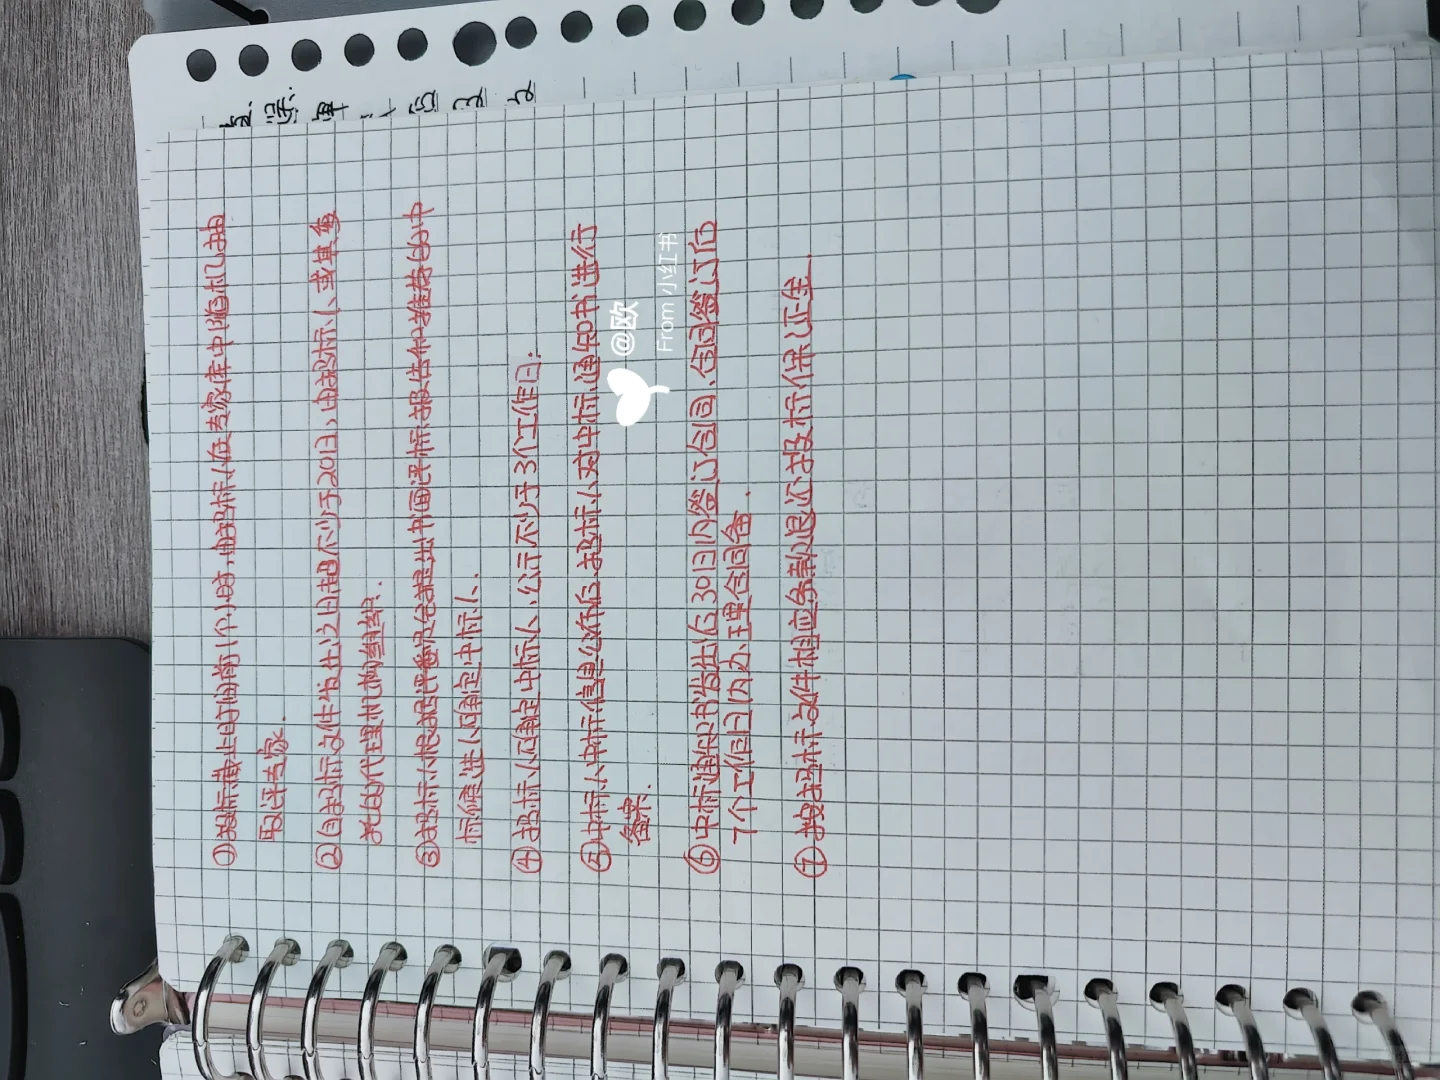 ①投标截止时间前1个小时,由招标人在专家库中随机抽
取评专家.
②自招标文件发出之日起不少于20日,由招标人或其委
托的代理机构组织.
③招标人根据评委会提出书面评标报告和推荐的中
标候选人确定中标人.
④招标人确定中标人,公示不少于3个工作日.
⑤中标人中标信息公布后,招标人对中标通知书进行
备案.
⑥中标通知书发出后30日内签订合同,合同签订后
7个工作日内办理合同备.
⑦按招标文件相应条款退还投标保证金.
@欧
From 小红书